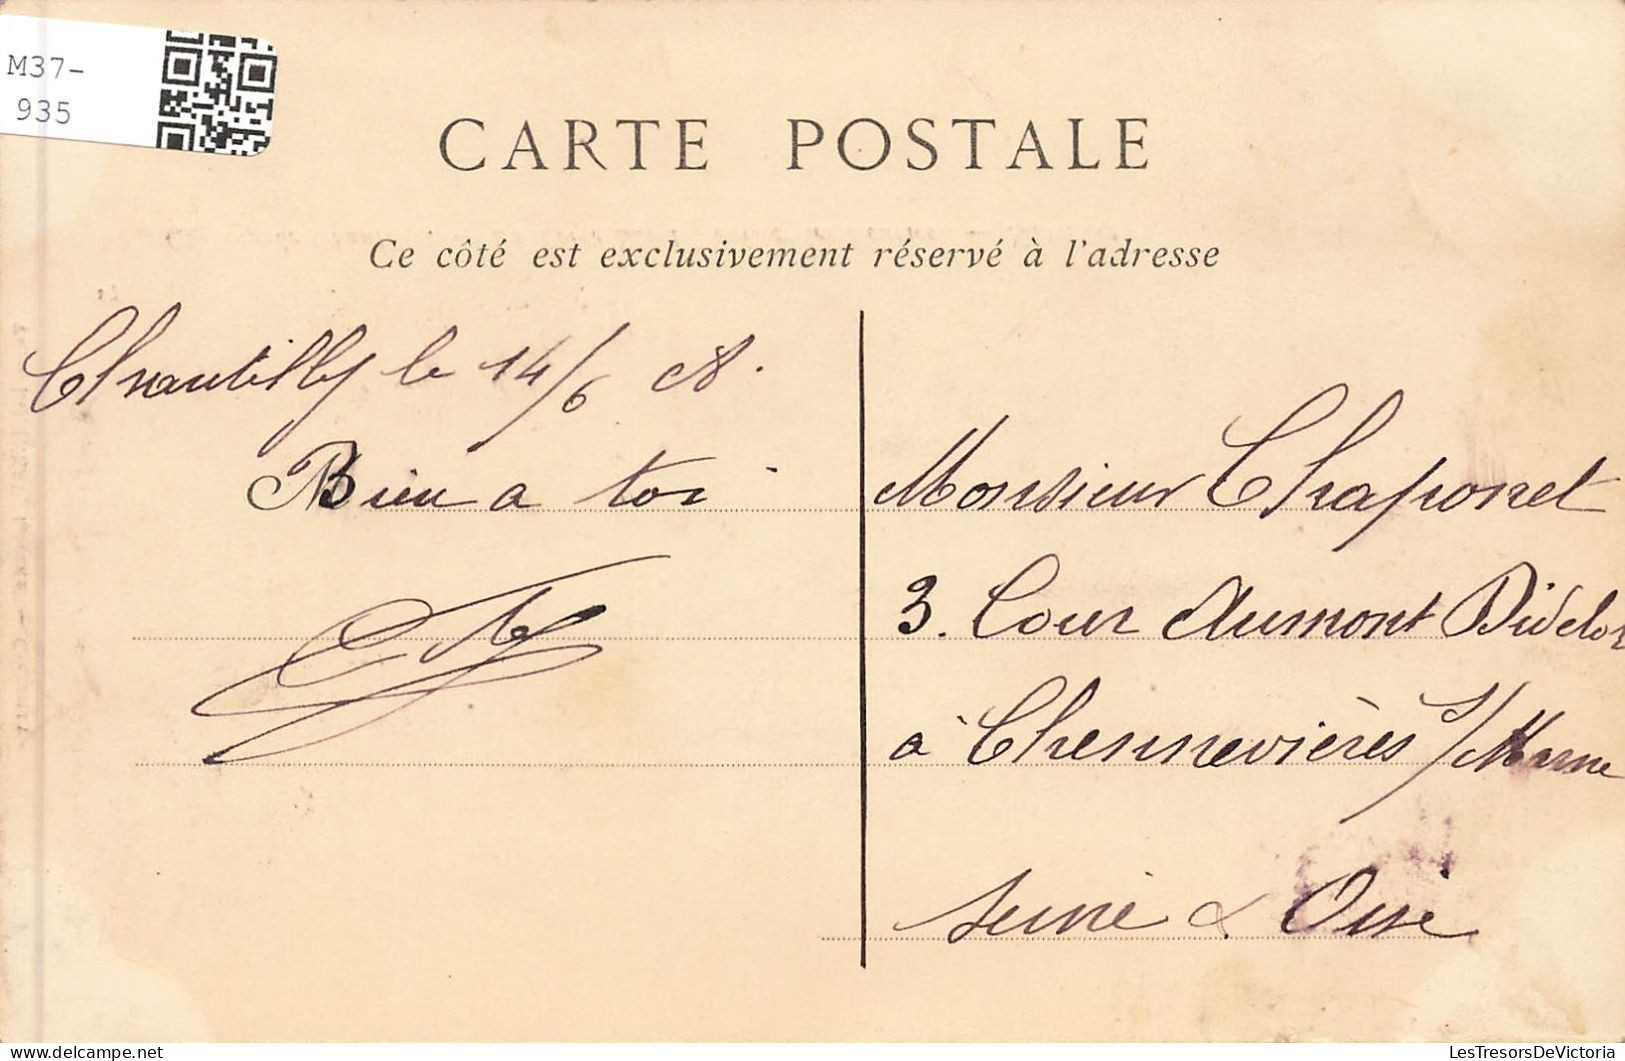 M37-
935
CARTE POSTALE
Ce côté est exclusivement réservé à l'adresse
Chantilly le 14/6
Bien a toi
Monsieur Chaponet
3. Cour Aumont
à Chennevières s/ Marne
Seine & Oise
LesTresorsDeVictoria